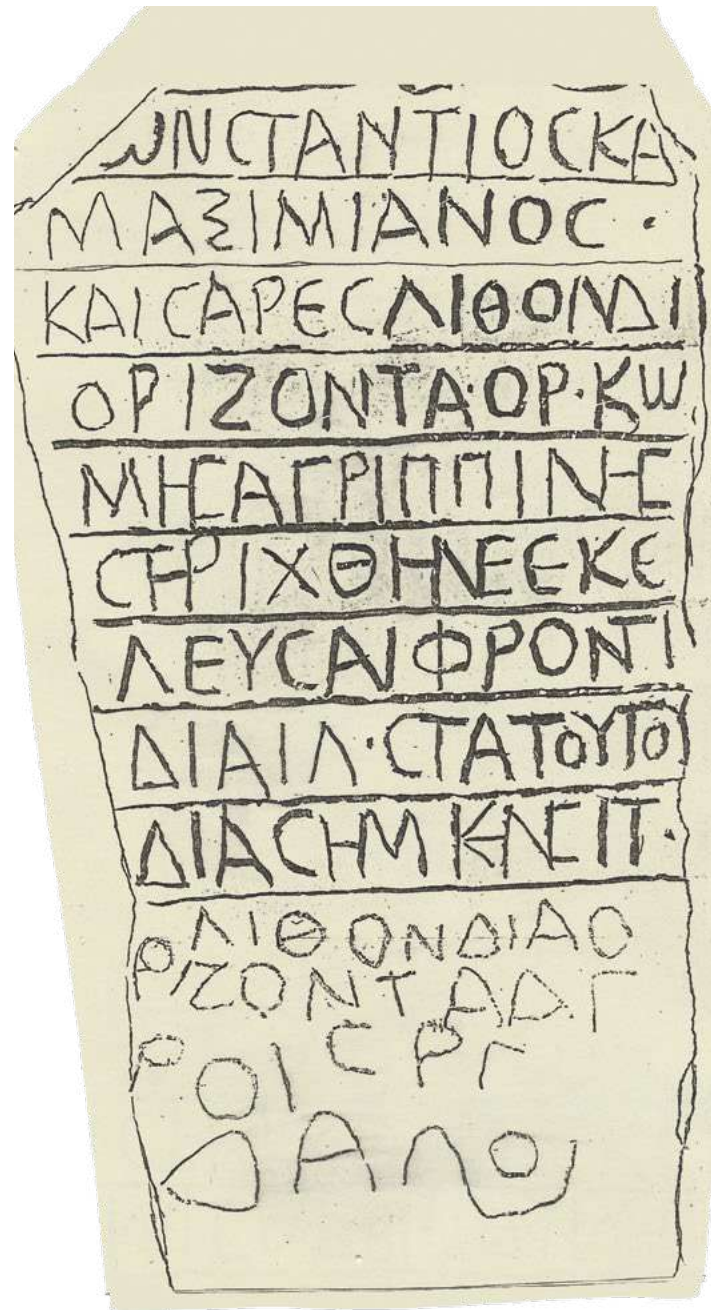 ωΝϹΤΑΝΤΙΟϹΚΑ
ΜΑΞΙΜΙΑΝΟϹ ·
ΚΑΙϹΑΡΕϹΛΙΘΟΝΔΙ
ΟΡΙΖΟΝΤΑ·ΟΡ·Κω
ΜΗϹΑΓΡΙΠΠΙΝΗϹ
ϹΤΗΡΙΧΘΗΝΕΕΚΕ
ΛΕΥϹΑΝΦΡΟΝΤΙ
ΔΙΑΙΛ·ϹΤΑΤΟΥΤΟΥ
ΔΙΑϹΗΜ ΚΗΝϹΙΤ·
ΛΙΘΟΝΔΙΑΟ
ΡΙΖΟΝΤΑΑΓ
ΡΟΙϹ ΡΓ